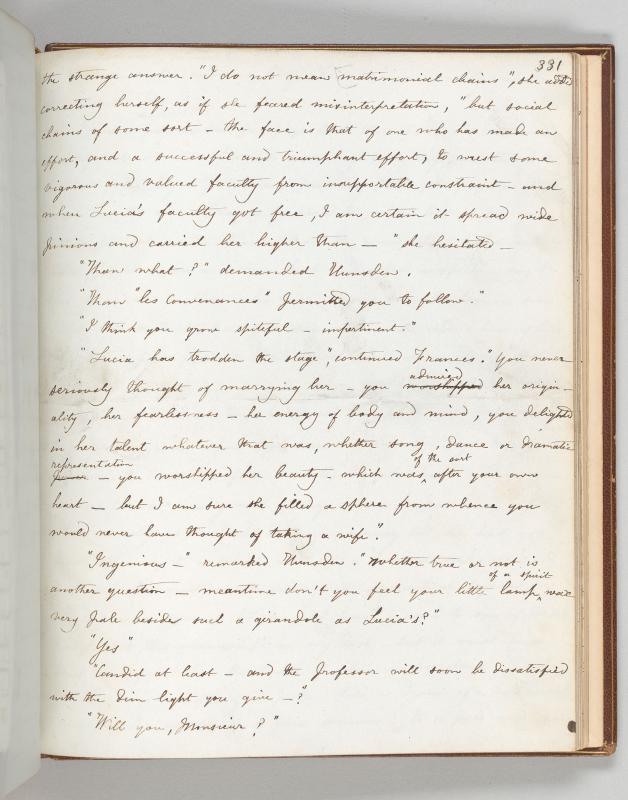 331
the strange answer. "I do not mean matrimonial chains", she added
correcting herself, as if she feared misinterpretation, "but social
chains of some sort – The face is that of one who has made an
effort, and a successful and triumphant effort, to wrest some
vigorous and valued faculty from insupportable constraint – and
when Lucia's faculty got free, I am certain it spread wide
pinions and carried her higher than – " she hesitated –
"Than what?" demanded Hunsden.
"Than "les convenances" permitted you to follow."
"I think you grow spiteful – impertinent."
"Lucia has trodden the stage", continued Frances. "You never
seriously thought of marrying her – you worshipped admired her origin-
ality, her fearlessness – her energy of body and mind, you delighted
in her talent whatever that was, whether song, dance or dramatic
representation – you worshipped her beauty – which was of the sort after your own
heart – but I am sure she filled a sphere from whence you
would never have thought of taking a wife".
"Ingenious –" remarked Hunsden. "Whether true or not is
another question – meantime don't you feel your little lamp of a spirit wax
very pale beside such a girandole as Lucia's?"
"Yes"
"Candid at least – and the Professor will soon be dissatisfied
with the dim light you give –?"
"Will you, Monsieur?"